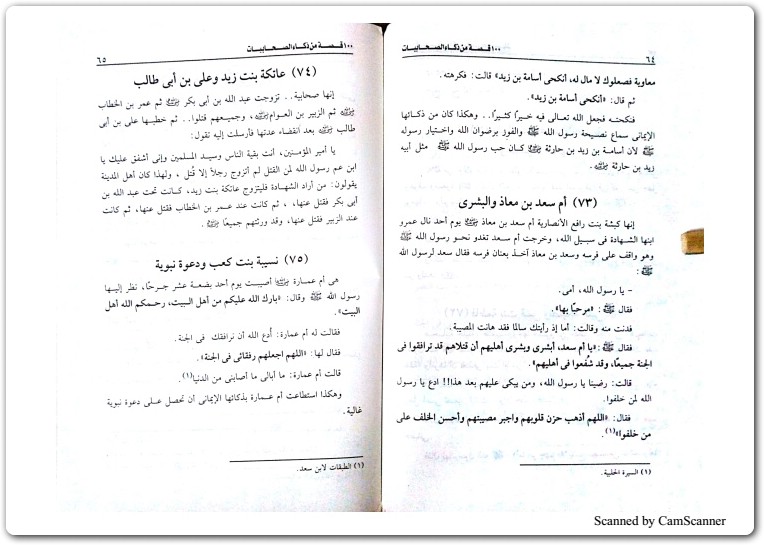 ٦٤
١٠٠ قصة من ذكاء الصحابيات
معاوية فصعلوك لا مال له، أنكحى أسامة بن زيد» قالت: فكرهته.
ثم قال: «أنكحى أسامة بن زيد».
فنكحته فجعل الله تعالى فيه خيرًا كثيرًا.. وهكذا كان من ذكائها
الإيمانى سماع نصيحة رسول الله ﷺ والفوز برضوان الله واختيار رسوله
ﷺ لأن أسامة بن زيد بن حارثة كان حب رسول الله ﷺ مثل أبيه
زيد بن حارثة.
(٧٣) أم سعد بن معاذ والبشرى
إنها كبشة بنت رافع الأنصارية أم سعد بن معاذ يوم أحد نال عمرو
ابنها الشهادة فى سبيل الله، وخرجت أم سعد تغدو نحو رسول الله ﷺ
وهو واقف على فرسه وسعد بن معاذ آخذ بعنان فرسه فقال سعد لرسول الله
ﷺ:
- يا رسول الله، أمى.
فقال ﷺ: «مرحبًا بها».
فدنت منه وقالت: أما إذ رأيتك سالمًا فقد هانت المصيبة.
فقال ﷺ: «يا أم سعد، أبشرى وبشرى أهليهم أن قتلاهم قد ترافقوا فى
الجنة جميعًا، وقد شُفعوا فى أهليهم».
قالت: رضينا يا رسول الله، ومن يبكى عليهم بعد هذا!! ادع يا رسول
الله لمن خلفوا.
فقال: «اللهم أذهب حزن قلوبهم واجبر مصيبتهم وأحسن الخلف على
من خلفوا»(١).
(١) السيرة الحلبية.
١٠٠ قصة من ذكاء الصحابيات
٦٥
(٧٤) عاتكة بنت زيد وعلى بن أبى طالب
إنها صحابية.. تزوجت عبد الله بن أبى بكر ثم عمر بن الخطاب
ثم الزبير بن العوام، وجميعهم قتلوا.. ثم خطبها على بن أبى
طالب بعد انقضاء عدتها فأرسلت إليه تقول:
يا أمير المؤمنين، أنت بقية الناس وسيد المسلمين وإنى أشفق عليك يا
ابن عم رسول الله لمن القتل لم أتزوج رجلاً إلا قُتل، ولهذا كان أهل المدينة
يقولون: من أراد الشهادة فليتزوج عاتكة بنت زيد، كانت تحت عبد الله بن
أبى بكر فقتل عنها، ، ثم كانت عند عمر بن الخطاب فقتل عنها، ثم كانت
عند الزبير فقتل عنها، وقد ورثتهم جميعًا.
(٧٥) نسيبة بنت كعب ودعوة نبوية
هى أم عمارة أصيبت يوم أحد بضعة عشر جرحًا، نظر إليها
رسول الله ﷺ وقال: «بارك الله عليكم من أهل البيت، رحمكم الله أهل
البيت».
فقالت له أم عمارة: أدع الله أن نرافقك فى الجنة.
فقال لها: «اللهم اجعلهم رفقائى فى الجنة».
قالت أم عمارة: ما أبالى ما أصابنى من الدنيا(١).
وهكذا استطاعت أم عمارة بذكائها الإيمانى أن تحصل على دعوة نبوية
غالية.
(١) الطبقات لابن سعد.
Scanned by CamScanner